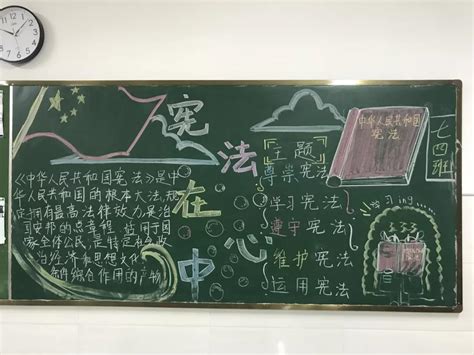 宪法在心中
《中华人民共和国宪法》是中
华人民共和国的根本大法,规
定拥有最高法律效力
是治
国安邦的总章程,适用于国
家全体公民,是特定社会政
治经济和思想文化
条件综合作用的产物
主题
尊崇宪法
学习宪法
遵守宪法
维护宪法
运用宪法
中华人民共和国
宪法
七四班
学习ing